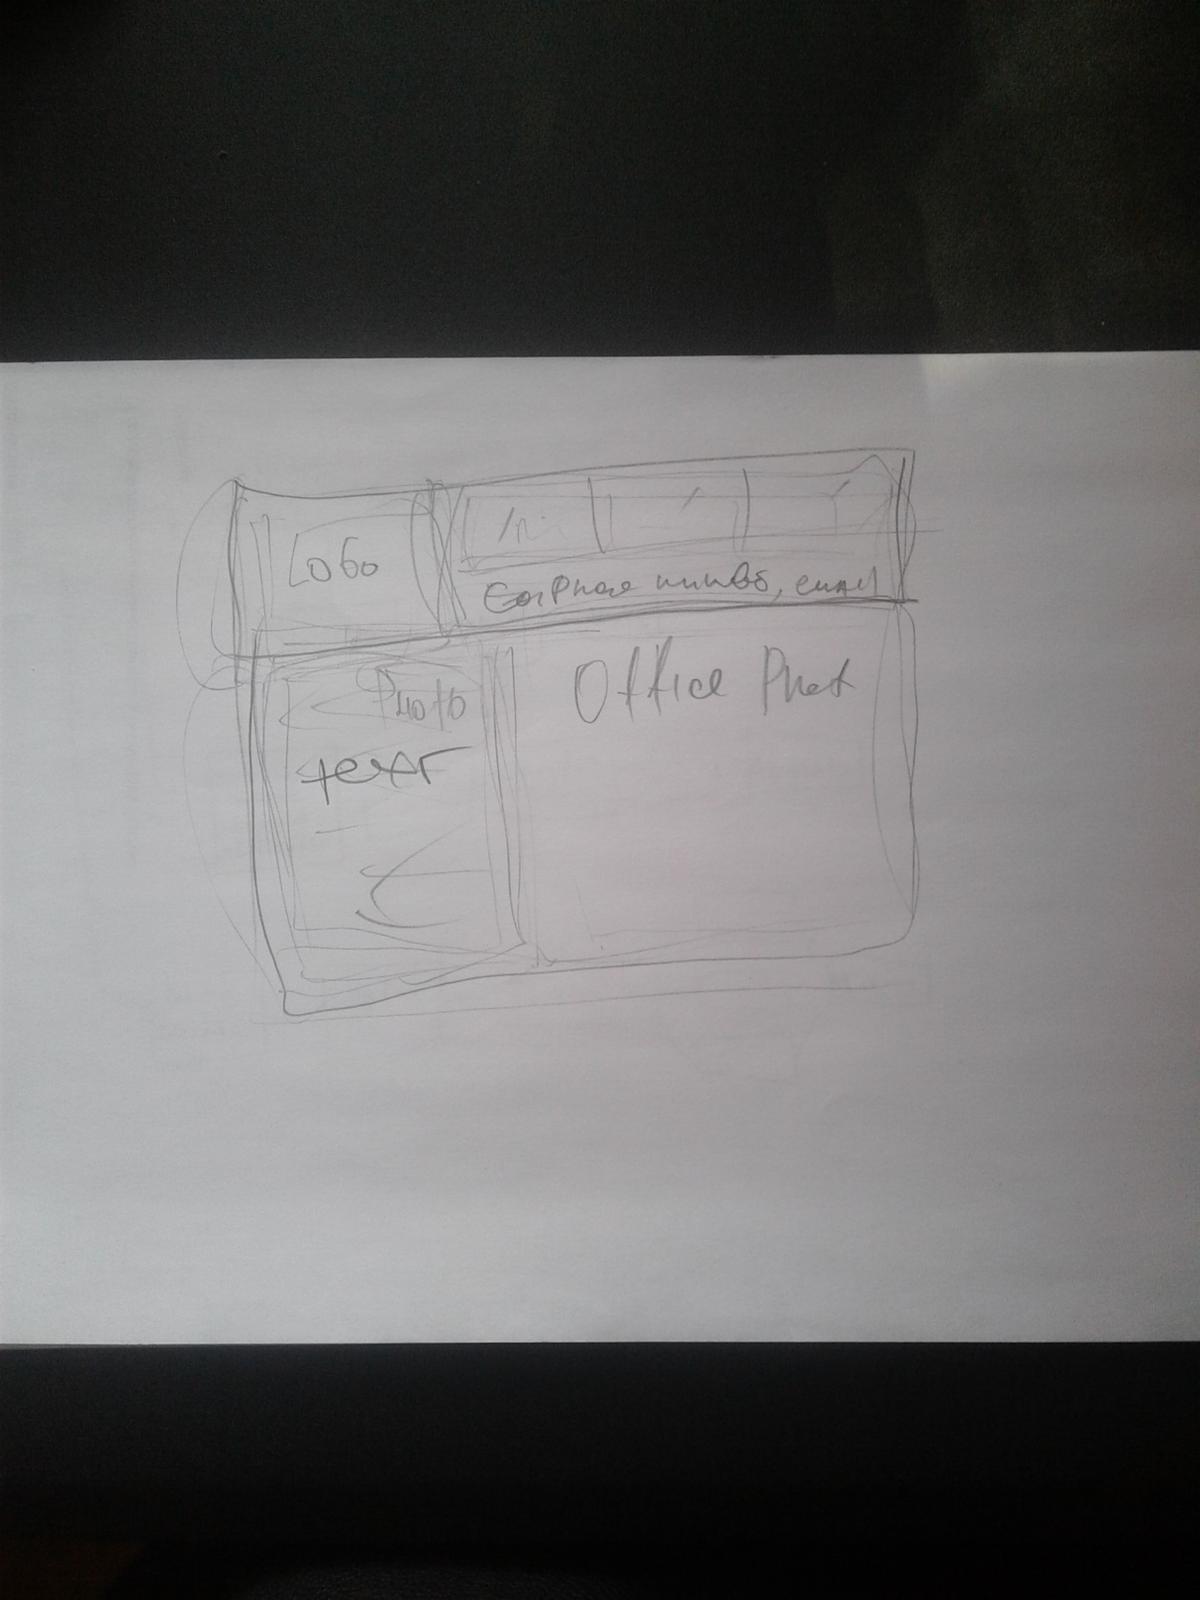 Logo
Phone number, email
Photo
text
Office Phot